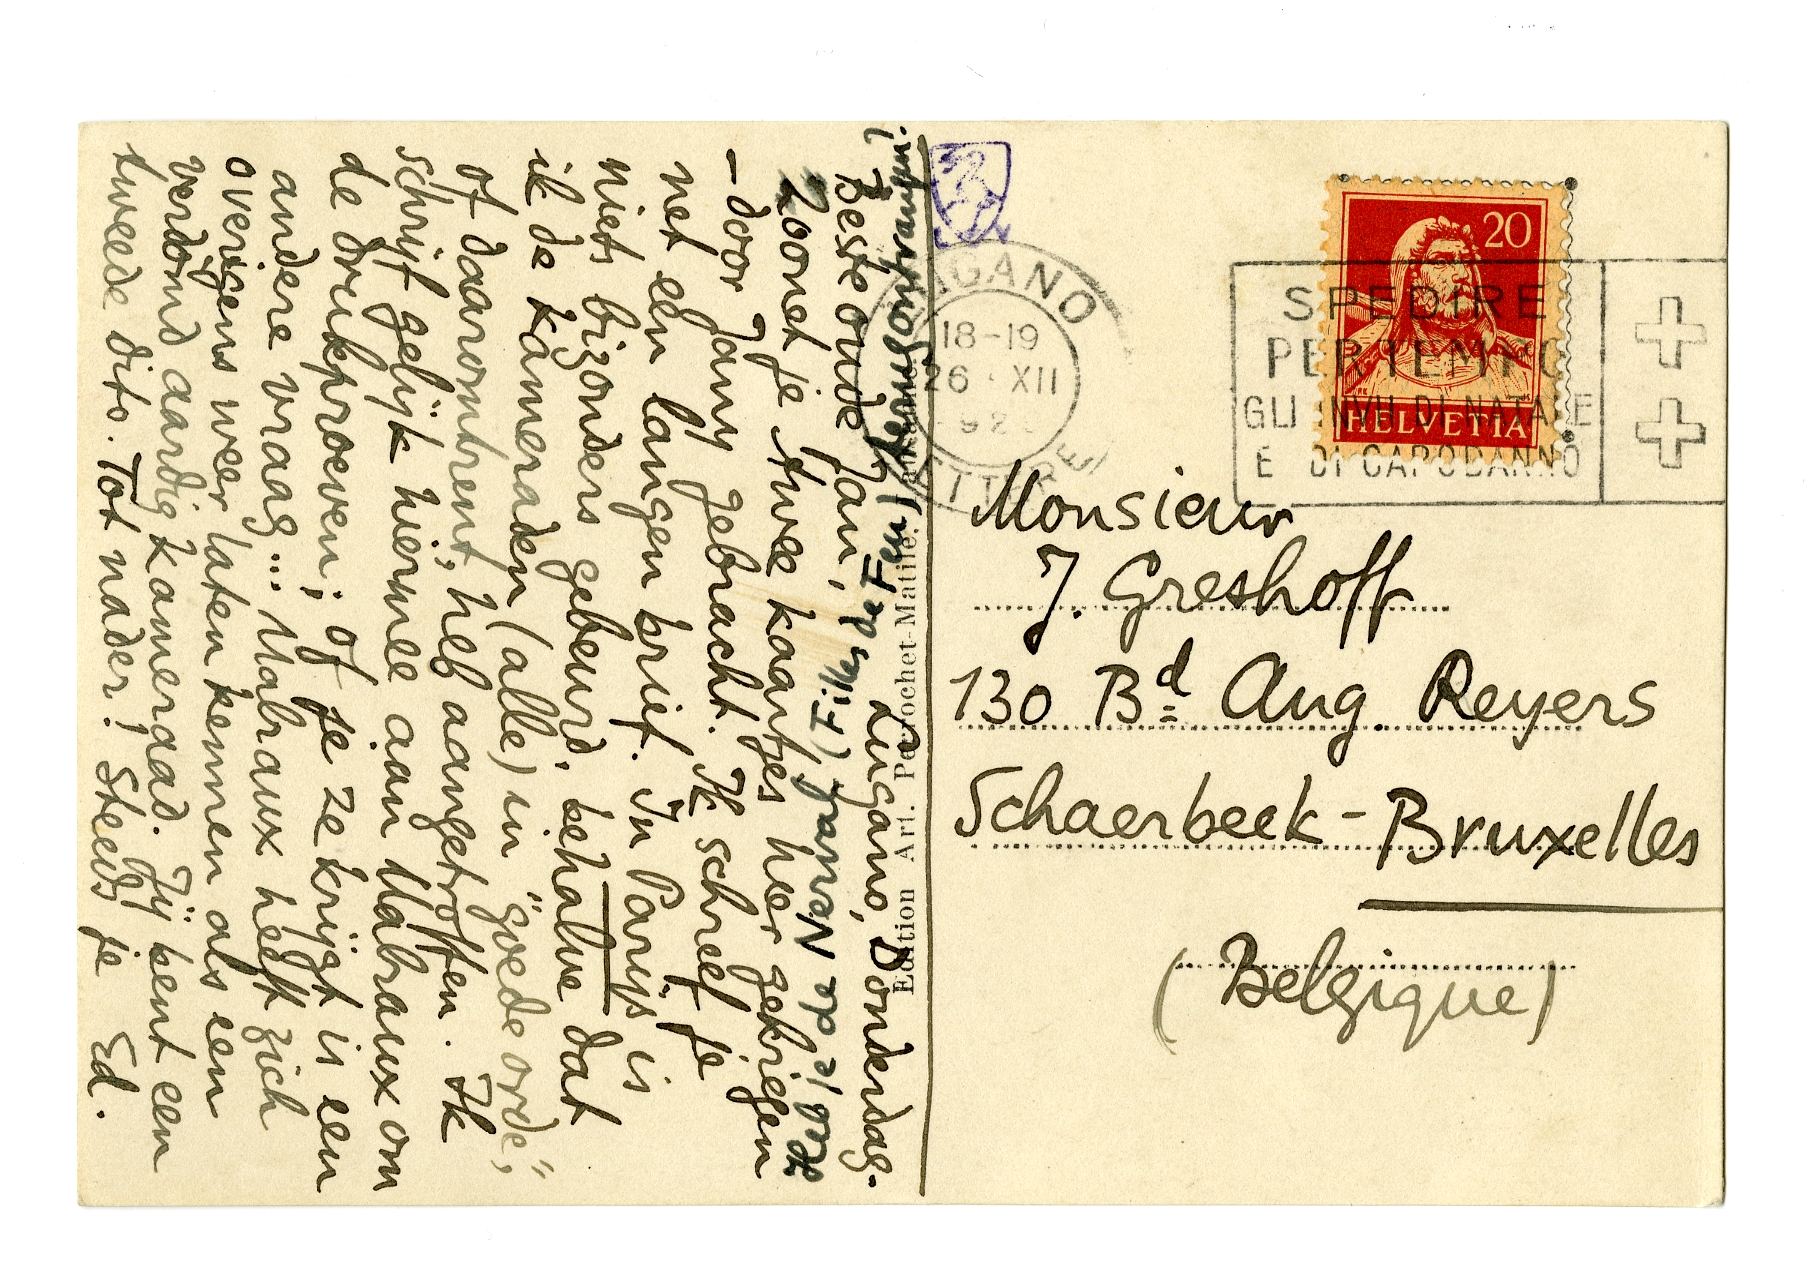 Lugano, Donderdag.
Beste oude Jan,
Zoonet je twee kaartjes hier gekregen
– door Jany gebracht. Ik schreef je
net een langen brief. In Parijs is
niets bizonders gebeurd, behalve dat
ik de kameraden (alle) in "goede orde",
of daaromtrent, heb aangetroffen. Ik
schrijf gelijk hiermee aan Malraux om
de drukproeven; of je ze krijgt is een
andere vraag... Malraux heeft zich
overigens weer laten kennen als een
verdomd aardig kameraad. Jij bent een
tweede dito. Tot nader! Steeds je Ed.
de Nerval (Filles de Feu)
Edition Art. Perrochet-Matile.
LUGANO
18-19
26 · XII
LETTERE
SPEDIRE
PER TEMPO
GLI INVII DI NATALE
E DI CAPODANNO
20
HELVETIA
Monsieur
J. Greshoff
130 Bd Aug. Reyers
Schaerbeek - Bruxelles
(Belgique)